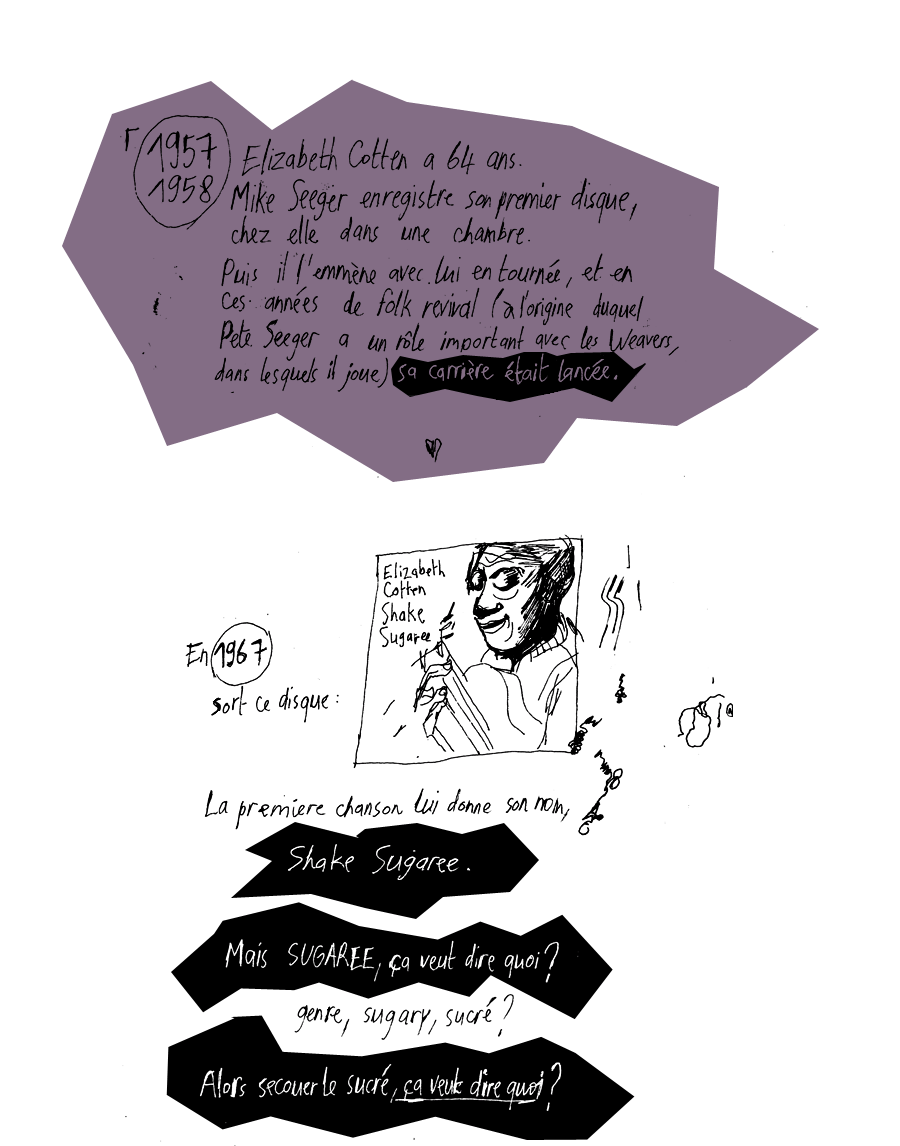 1957
1958
Elizabeth Cotten a 64 ans.
Mike Seeger enregistre son premier disque,
chez elle dans une chambre.
Puis il l'emmène avec lui en tournée, et en
ces années de folk revival (à l'origine duquel
Pete Seeger a un rôle important avec les Weavers,
dans lesquels il joue) sa carrière était lancée.
Elizabeth
Cotten
Shake
Sugaree
En 1967
sort ce disque :
La premiere chanson lui donne son nom,
Shake Sugaree.
Mais SUGAREE, ça veut dire quoi ?
genre, sugary, sucré ?
Alors secouer le sucré, ça veut dire quoi ?